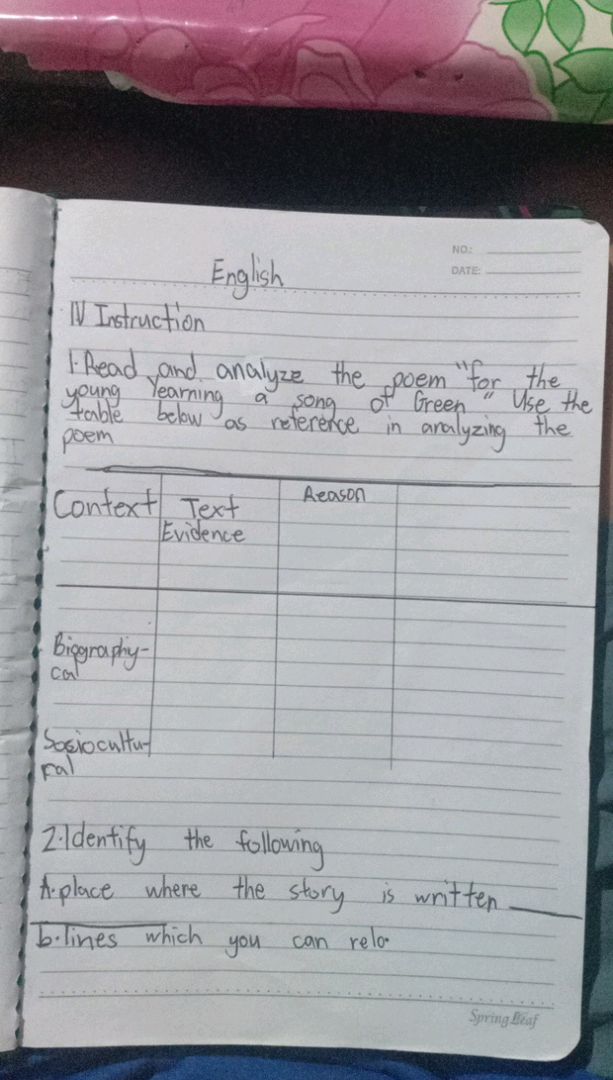 NO.:
DATE:
English
IV Instruction
1. Read and analyze the poem "for the
young Yearning a song of Green" Use the
table below as reference in analyzing the
poem
Context Text Evidence Reason
Biography-
cal
Sociocultu-
ral
2. Identify the following
A. place where the story is written
b. lines which you can rela.
Spring Leaf